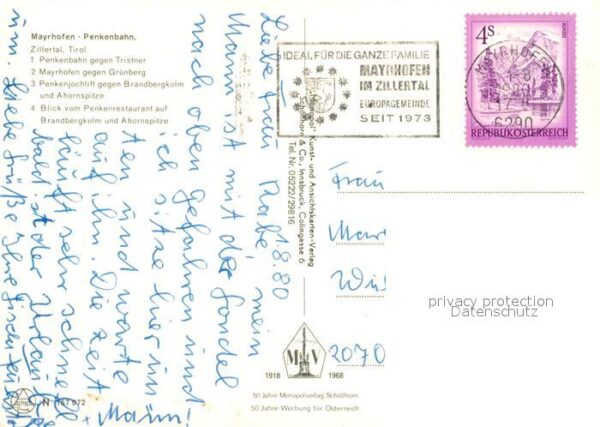 Mayrhofen - Penkenbahn,
Zillertal, Tirol
1 Penkenbahn gegen Tristner
2 Mayrhofen gegen Grünberg
3 Penkenjochlift gegen Brandbergkolm
und Ahornspitze
4 Blick vom Penkenrestaurant auf
Brandbergkolm und Ahornspitze
IDEAL FÜR DIE GANZE FAMILIE
MAYRHOFEN
IM ZILLERTAL
EUROPAGEMEINDE
SEIT 1973
4S
REPUBLIK ÖSTERREICH
MAYRHOFEN
6290
1.8.80
Liebe Frau Rabe, mein
Mann ist mit der Gondel
nach oben gefahren und
ich sitze hier im
und warte
auf ihn. Die Zeit
läuft sehr schnell
bald ist der Urlaub
um. Liebe Grüße Ihre
+ Mann!
Kunst- und Ansichtskarten-Verlag
Schöllhorn & Co., Innsbruck, Colingasse 6
Tel. Nr. 05222/29816
Frau
2070
MV
1918 1968
50 Jahre Monopolverlag Schöllhorn
50 Jahre Werbung für Österreich
N 157 072
privacy protection
Datenschutz